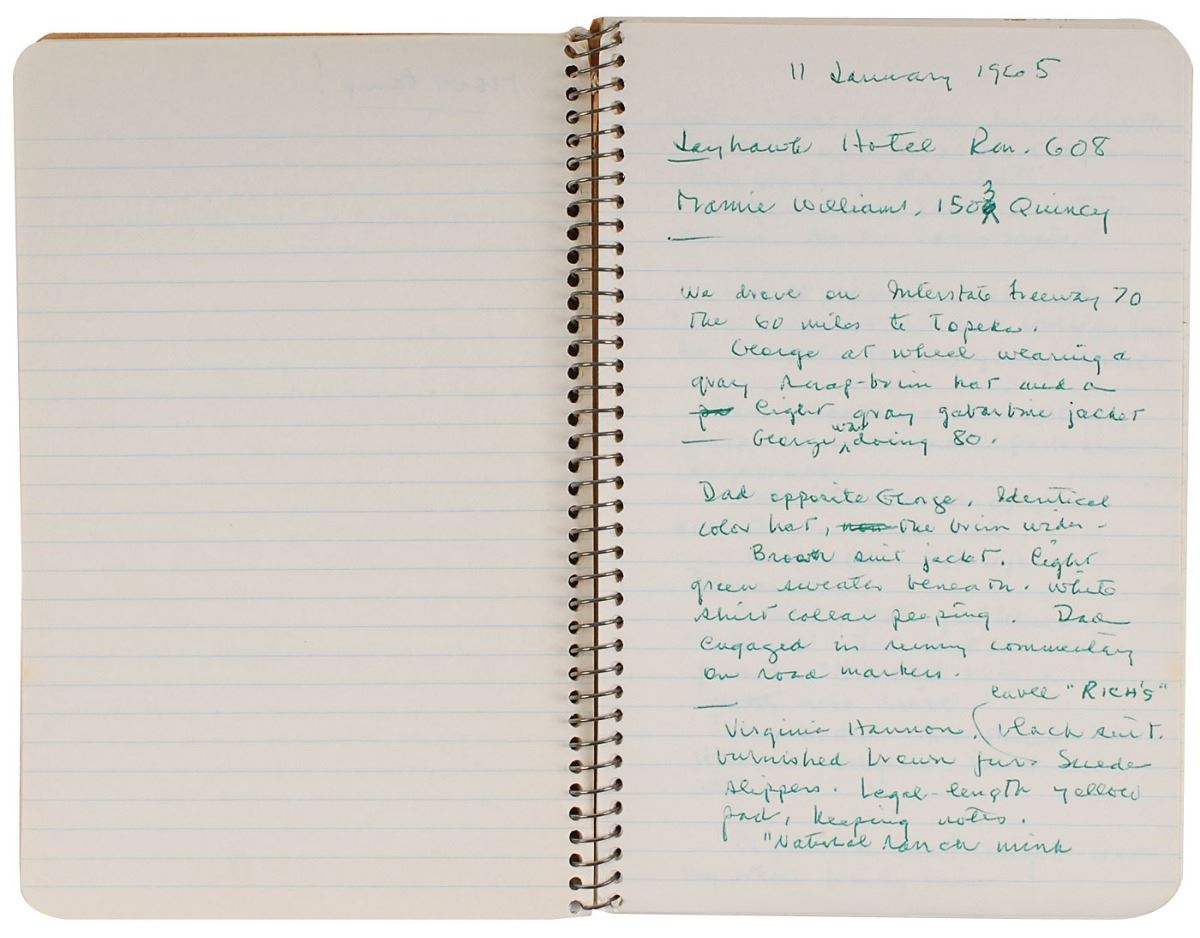 11 January 1965
Jayhawk Hotel Rm. 608
Mamie Williams, 1503 Quincy
We drove on Interstate freeway 70
the 60 miles to Topeka.
George at wheel wearing a
gray snap-brim hat and a
light gray gabardine jacket
— George was doing 80.
Dad opposite George. Identical
color hat, the brim wider -
Brown suit jacket. light
green sweater beneath. White
shirt collar peeping. Dad
engaged in running commentary
on road markers.
label "RICH'S"
Virginia Hannon, black suit.
burnished brown furs Suede
slippers. Legal-length yellow
pad, keeping notes.
"Natural ranch mink